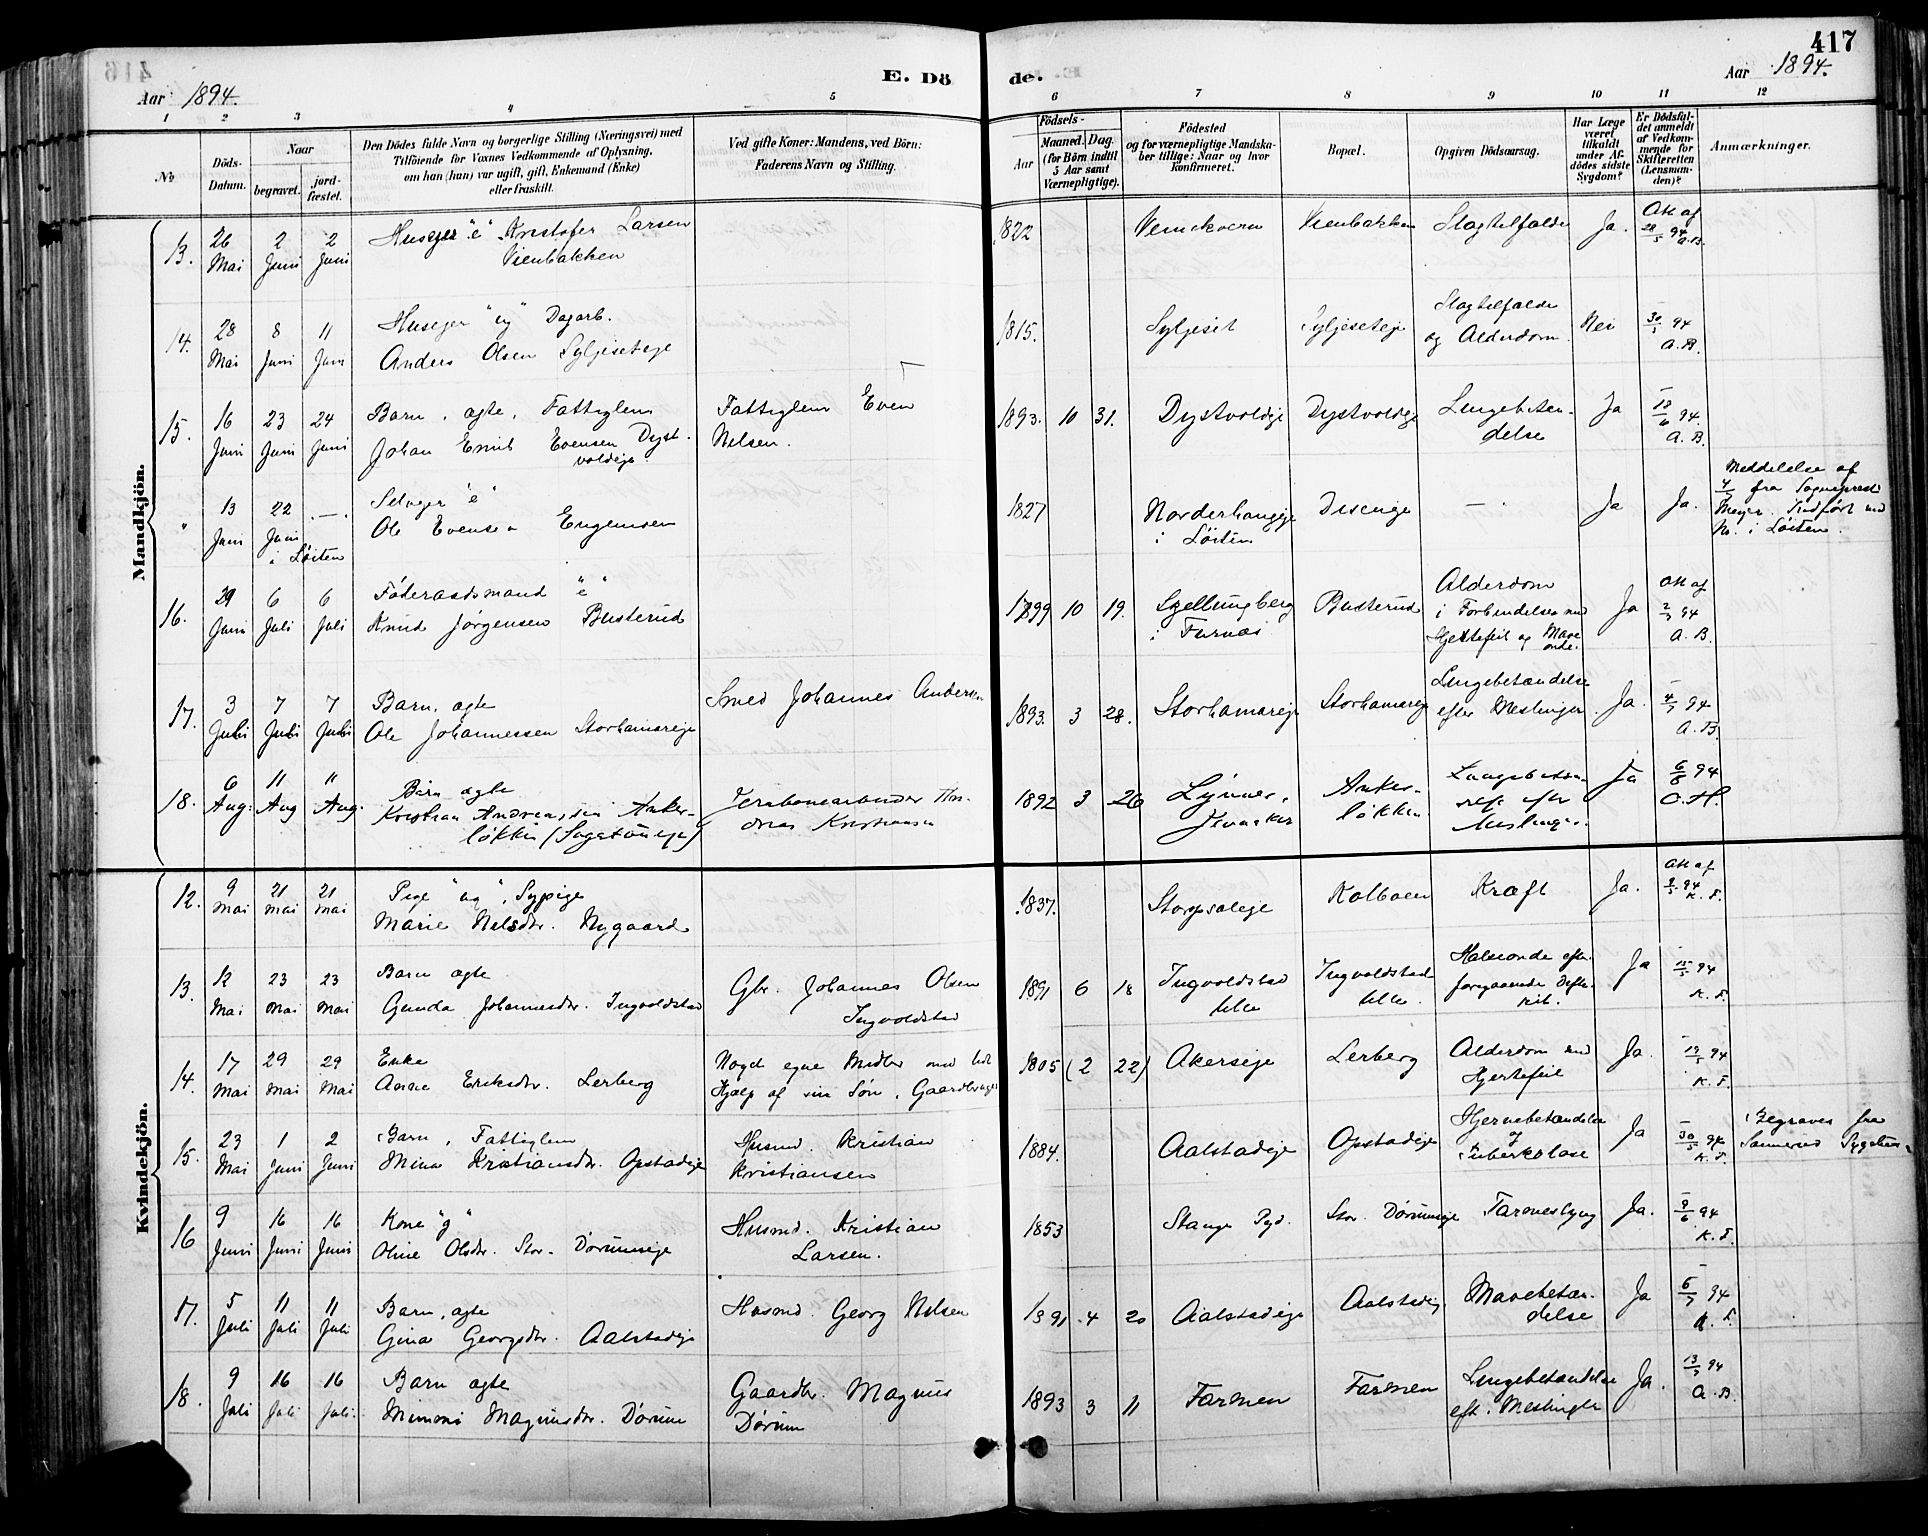 417
E. Dö
de.
Aar 1894.
Aar 1894.
1 2 3 4 5 6 7 8 9 10 11 12
№
Döds-
Datum.
Naar
begravet.
jord-
fæstet.
Den Dödes fulde Navn og borgerlige Stilling (Næringsvei) med
Tilföiende for Voxnes Vedkommende af Oplysning,
om han (hun) var ugift, gift, Enkemand (Enke)
eller fraskilt.
Ved gifte Koner: Mandens, ved Börn:
Faderens Navn og Stilling.
Födsels-
Aar
Maaned. Dag.
(for Börn indtil
5 Aar samt
Værnepligtige).
Födested
og for værnepligtige Mandska-
ber tillige: Naar og hvor
Konfirmeret.
Bopæl.
Opgiven Dödsaarsag.
Har Læge
været
tilkaldt
under Af-
dödes sidste
Sygdom?
Er Dödsfal-
det anmeldt
af Vedkom-
mende for
Skifteretten
(Lensman-
den)?
Anmærkninger.
Mandkjön.
13. 26 Mai 2 Juni 2 Juni
Huseyer "e" Kristofer Larsen
Vienbakken
1822 Vienbakken Slagtilfælde Ja. Att af 28/5 94 A.B.
14. 28 Mai 8 Juni 11 Juni
Huseyer "ug" Dagarb.
Anders Olsen Syljeseteje
1815. Syljeset Syljeseteje Slagtilfælde
og Alderdom Nei 30/5 94 A.B.
15. 16 Juni 23 Juni 24 Juni
Barn, ægte, Fattiglem
Johan Emil Evensen Dyst-
voldeje
Fattiglem Even
Nilsen.
1893. 10 31. Dystvoldeje Dystvoldeje Lungebetæn-
delse Ja 18/6 94. A.B.
" 13 Juni 22 Juni —
i Löiten
Selveyer "e"
Ole Evensen Engemoen
1827 Norderhaugeje
i Löiten Diseneje — Ja Ja.
Meddelelse af
fra Sogneprest
Meyer. Indført med
No. i Löiten.
16. 29 Juni 6 Juli 6 Juli
Föderaadsmand "e"
Knud Jørgensen Busterud
1799 10 19.
i Furnæs Busterud Alderdom
i Forbindelse med
Hjertefeil og Mave-
onde. Ja Att af 2/7 94 A.B.
17. 3 Juli 7 Juli 7 Juli
Barn, ægte
Ole Johannessen Storhamareje
Smed Johannes Andersen
1893. 3 28. Storhamareje Storhamareje Lungebetændelse
efter Meslinger Ja. 4/7 94 A.B.
18. 6 Aug. 11 Aug 11 Aug.
Barn ægte
Kristian Andreassen Anker-
løkken (Sagatuneje)
Jernbanearbeider An-
dreas Kristiansen
1892 3 26 Lynner,
Jevnaker Anker-
løkken Lungebetæn-
efter
Meslinger. Ja 6/8 94 O.H.
Kvindekjön.
12. 9 Mai 21 Mai 21 Mai
Pige "ug", Sypige
Marie Nilsdtr. Nygaard
1837. Kolboen Kræft Ja. Att af 94 K.F.
13. 12 Mai 23 Mai 23 Mai
Barn ægte
Gunda Johannesdtr. Ingvoldstad
Gbr. Johannes Olsen
Ingvoldstad
1891 6 18 Ingvoldstad
lille Ingvoldstad
lille. Halsonde efter
foregaaende Difte-
rit. Ja 15/5 94 K.F.
14. 17 Mai 29 Mai 29 Mai
Enke
Anne Eriksdtr. Lerberg
Noget egne Midler med lidt
Hjælp af sin Sön, Gaardbruger
1805 (2 22) Akerseje Lerberg Alderdom med
Hjertefeil Ja. 19/5 94 K.F.
15. 23 Mai 1 Juni 2 Juni
Barn, Fattiglem
Mina Kristiansdtr. Opstadeje
Husmd. Kristian
Kristiansen
1884. Aalstadeje Opstadeje Hjernebetændelse
og
Tuberkolose Ja 30/5 94 K.F.
Begraves fra
Sannerud Sygehus
16 9 Juni 16 Juni 16 Juni
Kone "g"
Oline Olsdtr. Stor-Dörumseje
Husmd. Kristian
Larsen.
1853 Stange Pgd. Stor Dörumseje Tarmeslyng Ja. 9/6 94 K.F.
17. 5 Juli 11 Juli 11 Juli
Barn, ægte
Gina Georgsdtr. Aalstadeje
Husmd. Georg Nilsen
1891 4 20 Aalstadeje Aalstadeje Mavebetæn-
delse Ja 6/7 94 K.F.
18. 9 Juli 16 Juli 16 Juli.
Barn ægte
Mimmi Magnusdtr. Dörum
Gaardbr. Magnus
Dörum
1893 3 11 Farmen Farmen Lungebetændelse
eft. Meslinger Ja. 13/7 94 A.B.